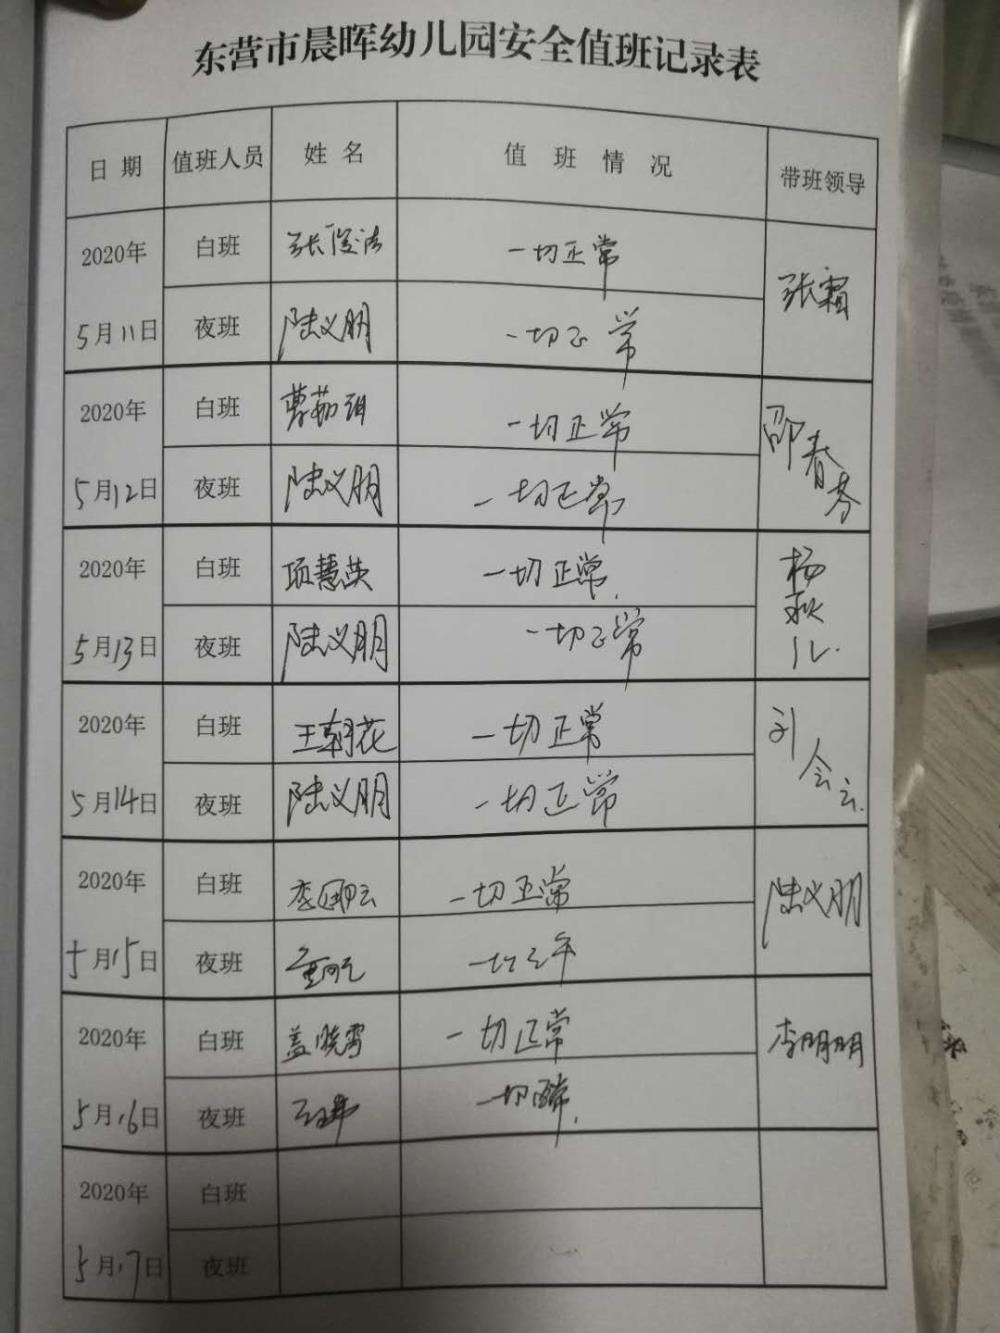 东营市晨晖幼儿园安全值班记录表
日期 值班人员 姓名 值班情况 带班领导
2020年 白班 张俊洁 一切正常 张霜
5月11日 夜班 陆义朋 一切正常
2020年 白班 曹茹 一切正常 邵春芬
5月12日 夜班 陆义朋 一切正常
2020年 白班 项慧英 一切正常. 杨秋儿.
5月13日 夜班 陆义朋 一切正常
2020年 白班 王朝花 一切正常 刘会云.
5月14日 夜班 陆义朋 一切正常
2020年 白班 一切正常 陆义朋
5月15日 夜班
2020年 白班 盖晓雪 一切正常 李明明
5月16日 夜班 一切正常.
2020年 白班
5月17日 夜班